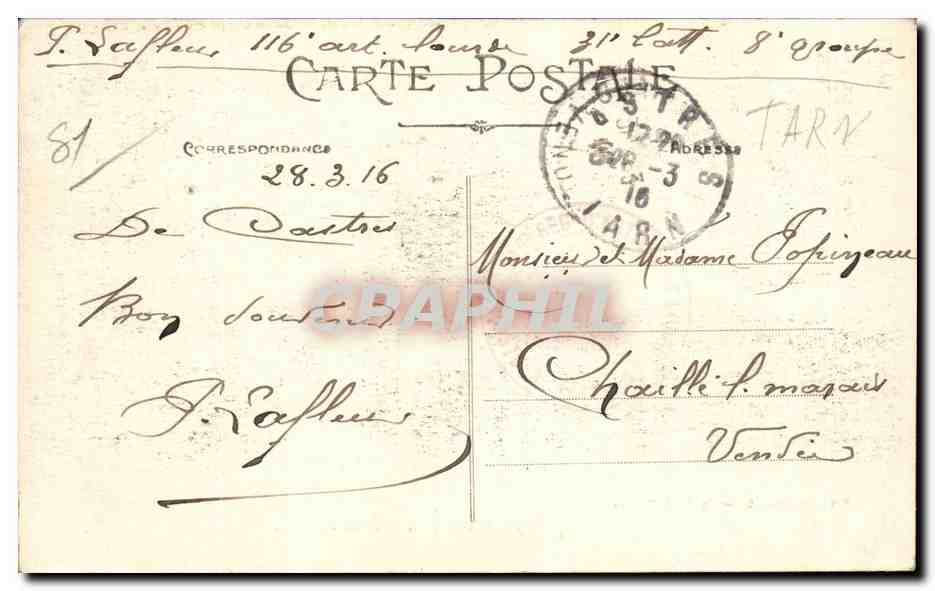 P. Lafleur 116e art. lourde 31e batt. 8e groupe
CARTE POSTALE
TARN
81
CORRESPONDANCE
ADRESSE
28.3.16
De Castres
Bon souvenir
P. Lafleur
CASTRES
TARN
Monsieur et Madame Popineau
Chaillé l. marais
Vendée
CPAPHIL